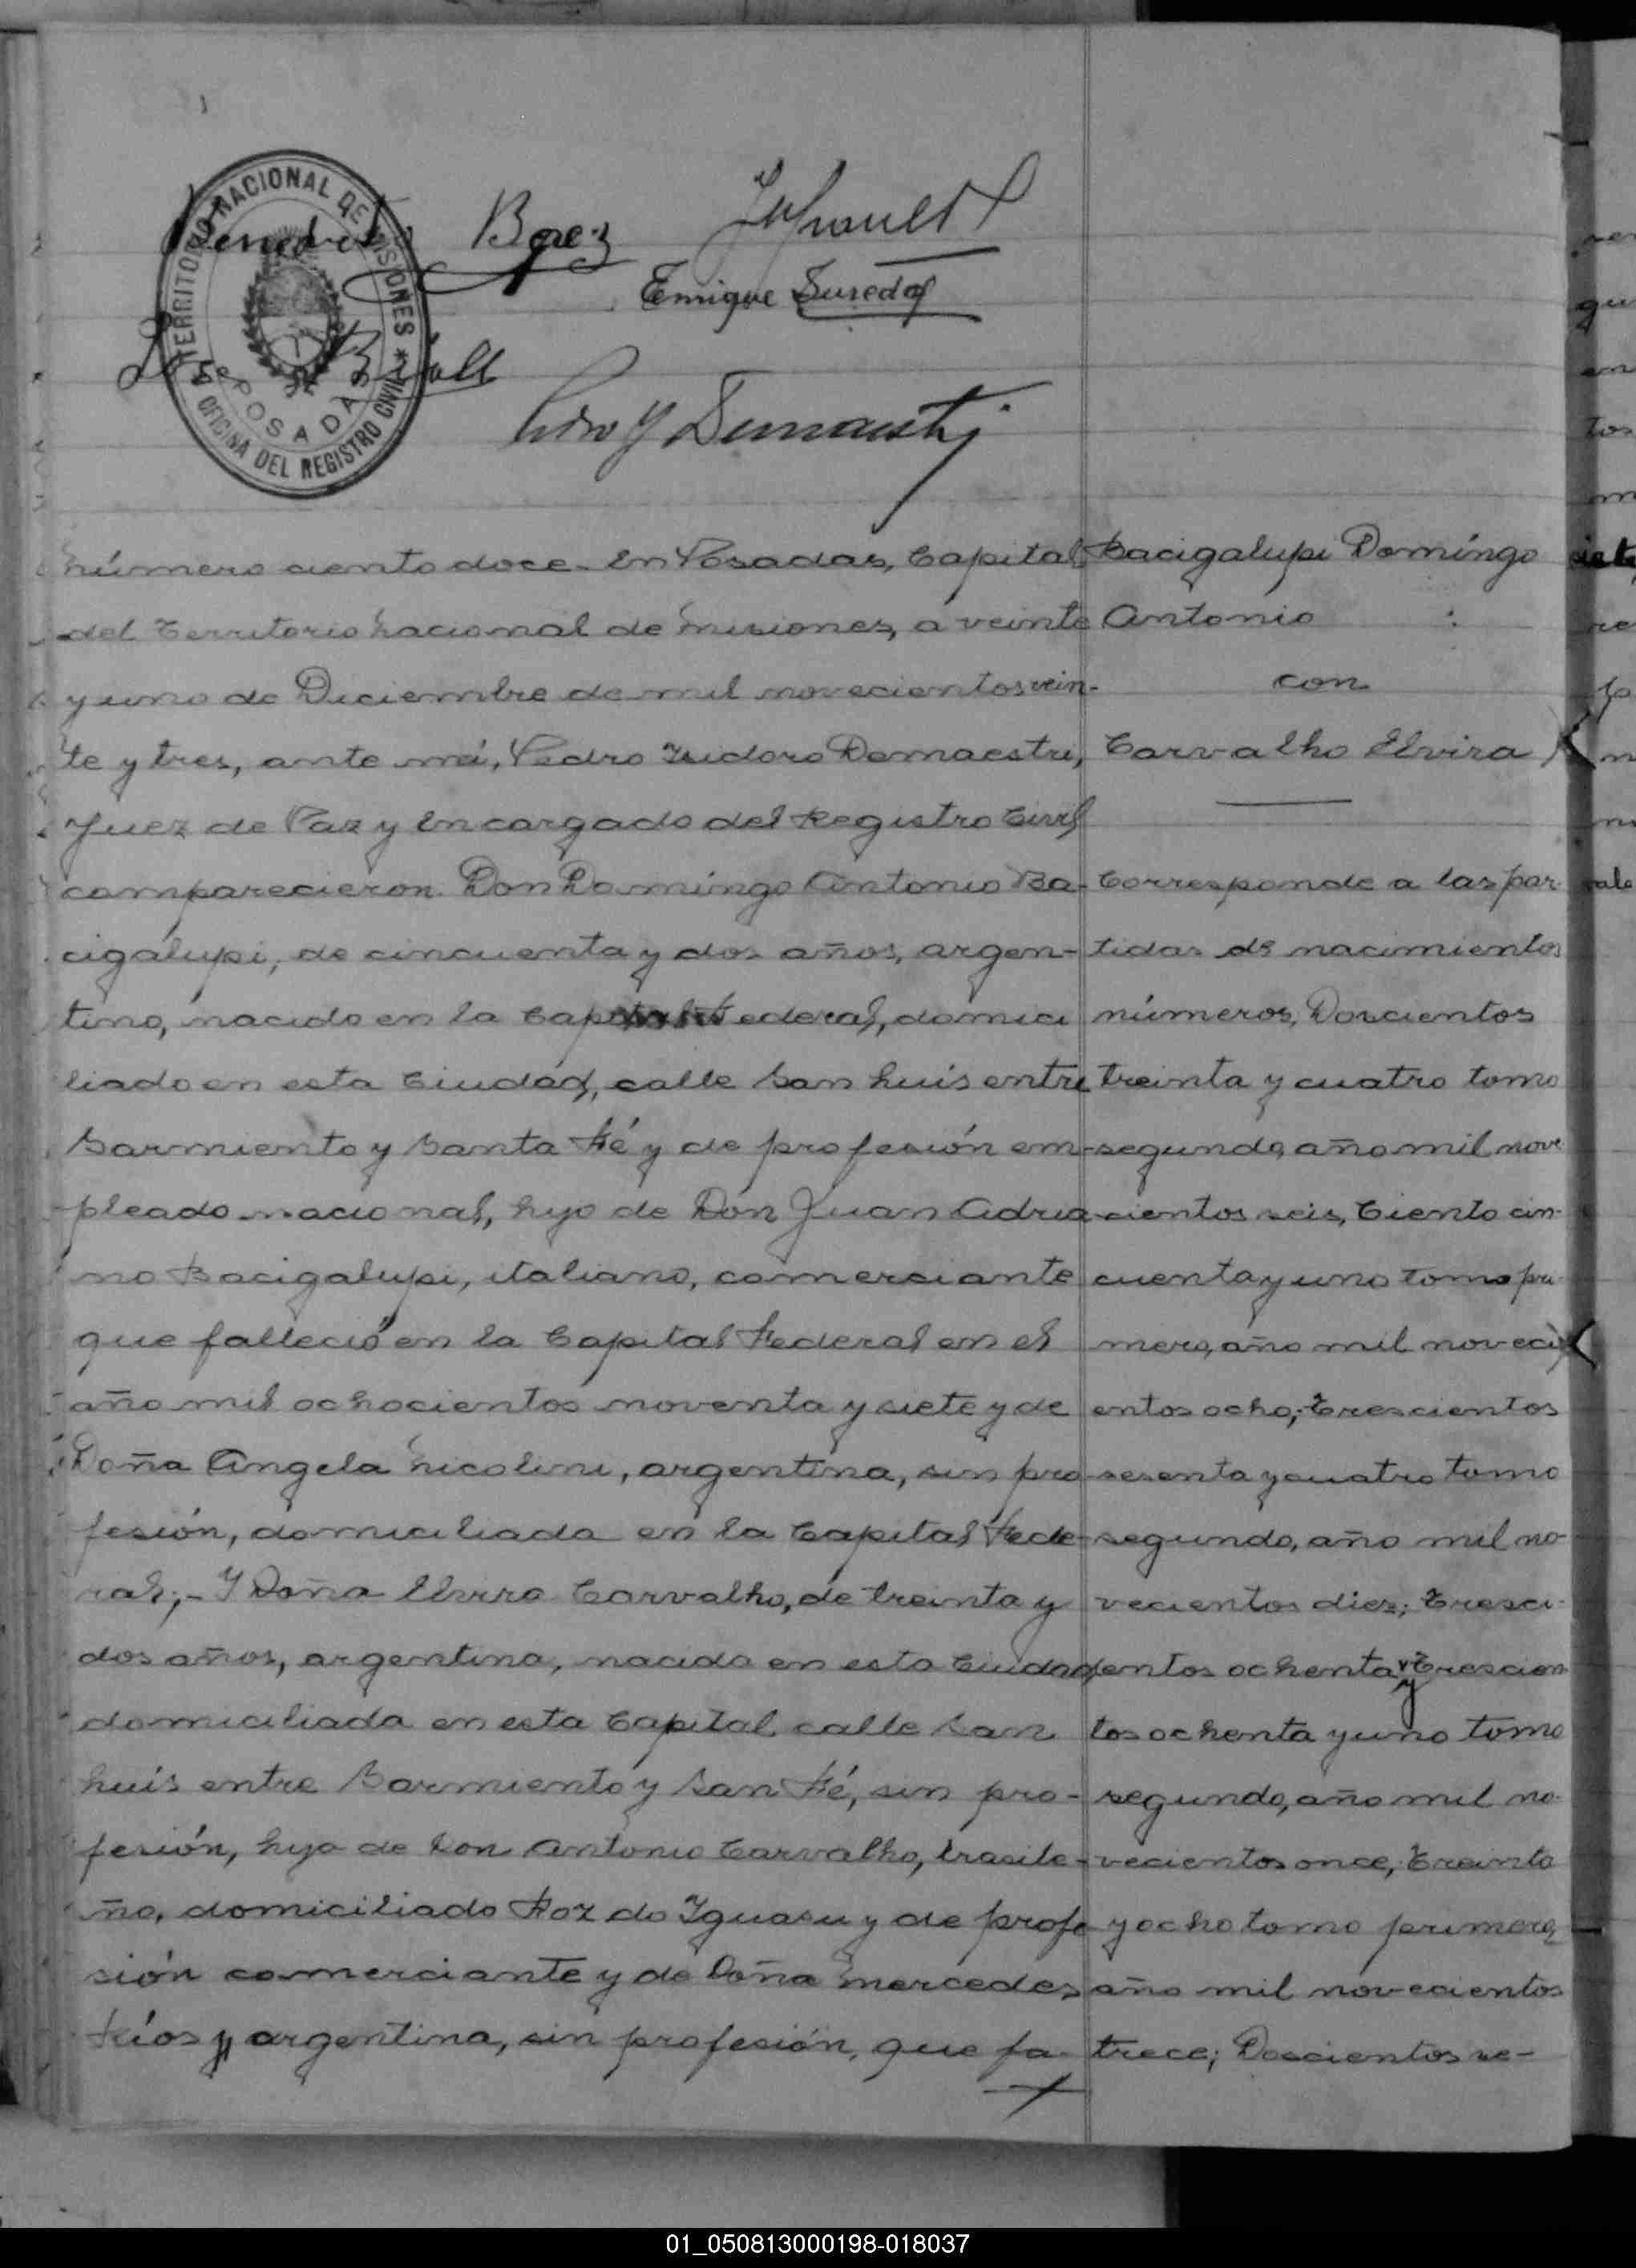 TERRITORIO NACIONAL DE MISIONES
OFICINA DEL REGISTRO CIVIL
POSADAS
Baez
Enrique Sureda
Número ciento doce. En Posadas, Capital
del Territorio Nacional de Misiones, a veinte
y uno de Diciembre de mil novecientos vein-
te y tres, ante mi, Pedro Isidoro Demaestri,
Juez de Paz y Encargado del Registro Civil
comparecieron Don Domingo Antonio Ba-
cigalupi, de cincuenta y dos años, argen-
tino, nacido en la Capital Federal, domici
liado en esta Ciudad, calle San Luis entre
Sarmiento y Santa Fé y de profesión em-
pleado nacional, hijo de Don Juan Adria
no Bacigalupi, italiano, comerciante
que falleció en la Capital Federal en el
año mil ochocientos noventa y siete y de
Doña Angela Nicolini, argentina, sin pro
fesión, domiciliada en la Capital Fede-
ral;- Y Doña Elvira Carvalho, de treinta y
dos años, argentina, nacida en esta Ciudad,
domiciliada en esta Capital calle San
Luis entre Sarmiento y San Fé, sin pro-
fesión, hija de Don Antonio Carvalho, brasile-
ño, domiciliado Foz do Iguasu y de profe
sión comerciante y de Doña Mercedes
Ríos y argentina, sin profesión, que fa-
Bacigalupi Domingo
Antonio :
con
Carvalho Elvira
Corresponde a las par-
tidas de nacimientos
números, Doscientos
treinta y cuatro tomo
segundo, año mil nove
cientos seis, Ciento cin-
cuenta y uno tomo pri-
mero, año mil noveci
entos ocho; Trescientos
sesenta y cuatro tomo
segundo, año mil no-
vecientos diez; Tresci-
entos ochenta y Trescien
tos ochenta y uno tomo
segundo, año mil no-
vecientos once, Treinta
y ocho tomo primero,
año mil novecientos
trece; Doscientos se-
01_050813000198-018037